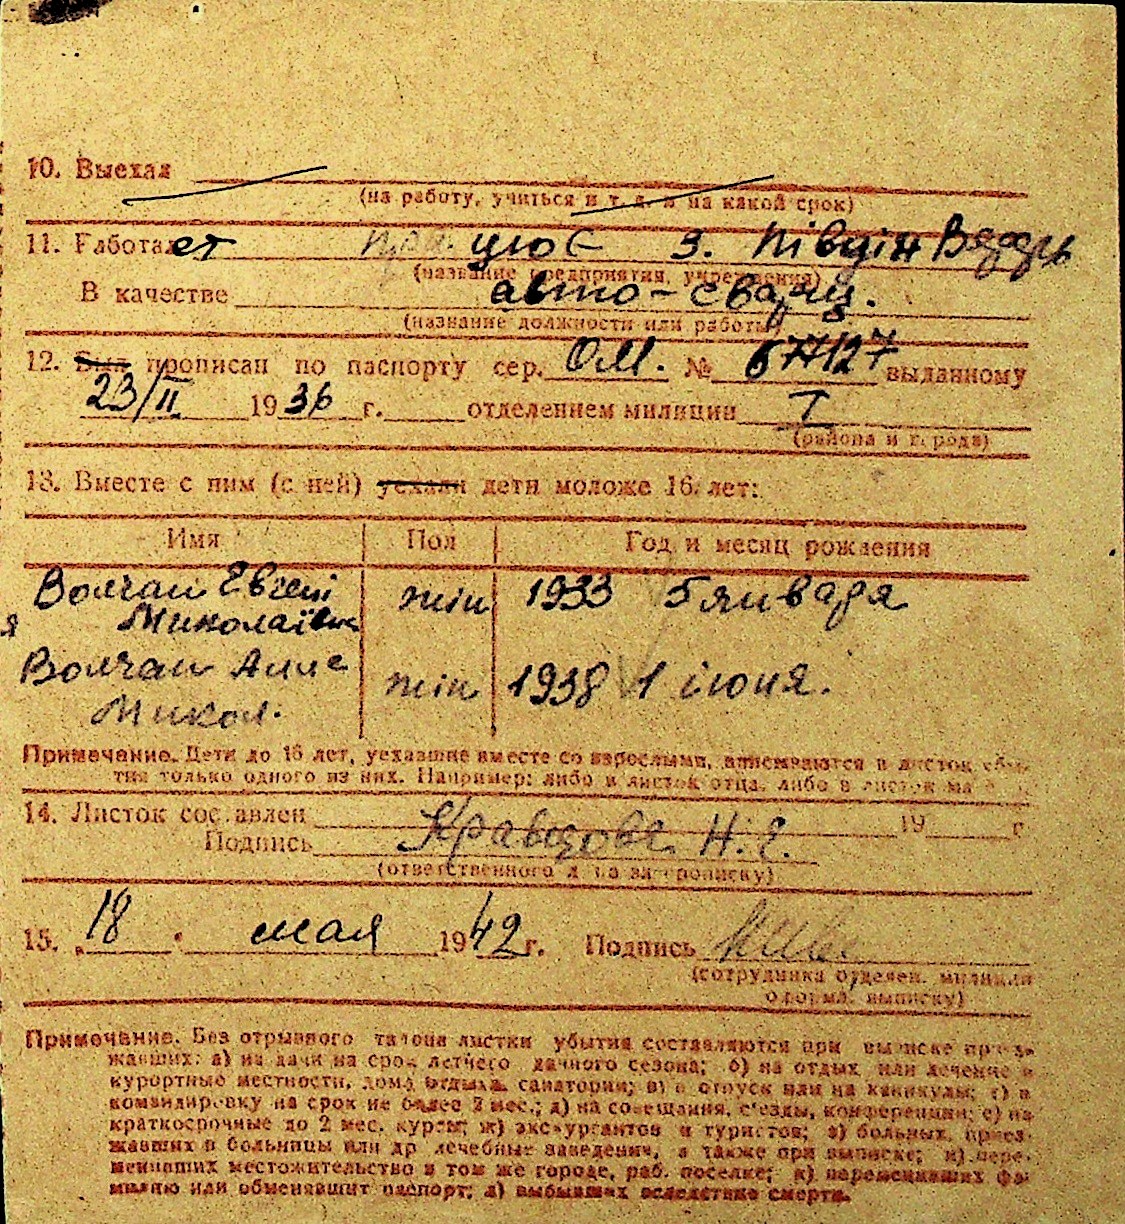 10. Выехал
(на работу, учиться и т. д. и на какой срок)
11. Работает працює з. Південн
(название предприятия, учреждения)
В качестве авто-сварщ.
(название должности или работы)
12. Был прописан по паспорту сер. ОМ. № 677127 выданному
23/II 1936 г. отделением милиции I
(района и города)
13. Вместе с ним (с ней) уехали дети моложе 16 лет:
Имя Пол Год и месяц рождения
Волчан Евгенi жiн 1933 5 января
я Миколаївна
Волчан Анна жiн 1938 1 iюня.
Микол.
Примечание. Дети до 16 лет, уехавшие вместе со взрослыми, вписываются в листок убы-
тия только одного из них. Например: либо в листок отца, либо в листок
14. Листок составлен 19 г
Подпись Кравцова Н. Е.
(ответственного за прописку)
15. „18 " мая 1942 г. Подпись
(сотрудника отделен. милиции
оформл. выписку)
Примечание. Без отрывного талона листки убытия составляются при выписке приез-
жавших: а) на дачи на срок летнего дачного сезона; б) на отдых или лечение в
курортные местности, дома отдыха, санатории; в) в отпуск или на каникулы; г) в
командировку на срок не более 2 мес.; д) на совещания, съезды, конференции; е) на
краткосрочные до 2 мес. курсы; ж) экскурсантов и туристов; з) больных, приез-
жавших в больницы или др лечебные заведения, а также при выписке; и) пере-
менивших местожительство в том же городе, раб. поселке; к) переменивших фа-
милию или обменявшит паспорт; л) выбывших вследствие смерти.